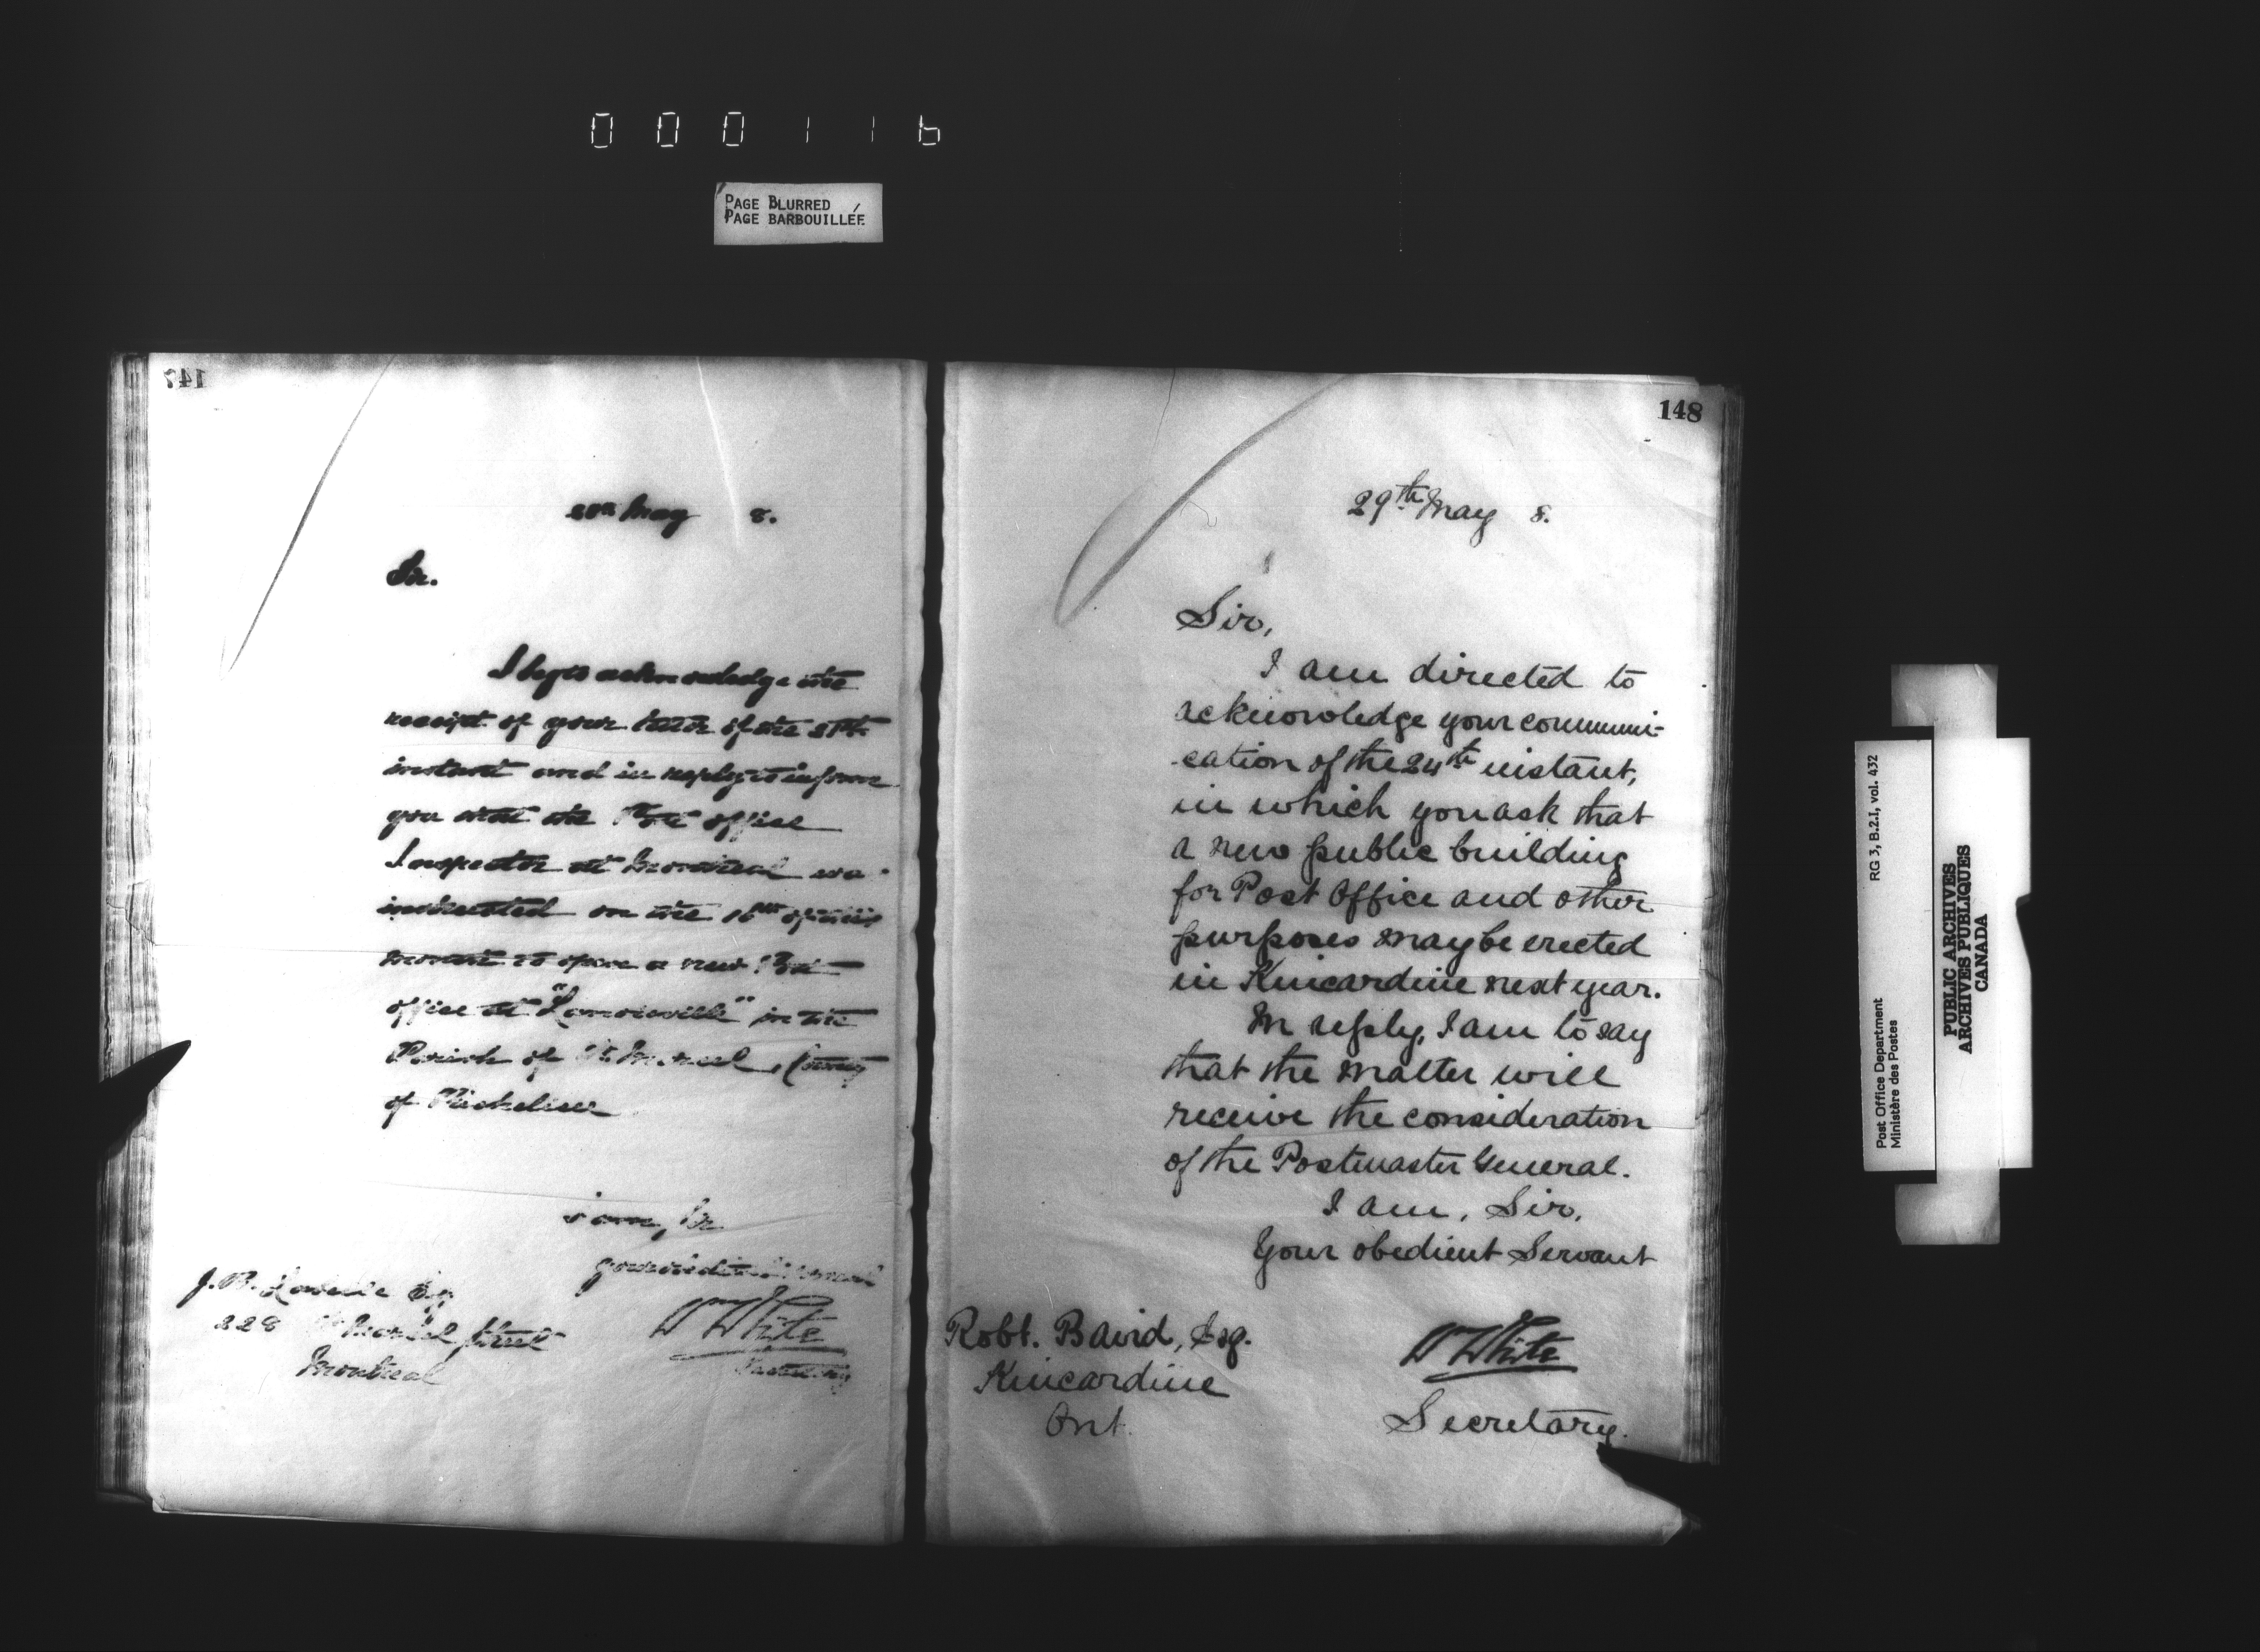 000116
PAGE BLURRED
PAGE BARBOUILLÉE
147
May 8.
Sir.
I beg to acknowledge the
receipt of your letter of the
instant and in reply to inform
you that the Post office
Inspector at Montreal was
instructed on the 16th of this
month to open a new Post
office at "Lamoureville" in the
Parish of St Marcel, County
of Richelieu
I am, Sir
Your obedient Servant
WmWhite
Secretary
J.B. Esq
228 Street
Montreal
148
29th May 8.
Sir,
I am directed to
acknowledge your communi-
-cation of the 24th instant,
in which you ask that
a new public building
for Post Office and other
purposes may be erected
in Kincardine next year.
In reply, I am to say
that the matter will
receive the consideration
of the Postmaster General.
I am, Sir,
Your obedient Servant
WWhite
Secretary.
Robt. Baird, Esq.
Kincardine
Ont.
RG 3, B.2.I, vol. 432
Post Office Department
Ministère des Postes
PUBLIC ARCHIVES
ARCHIVES PUBLIQUES
CANADA